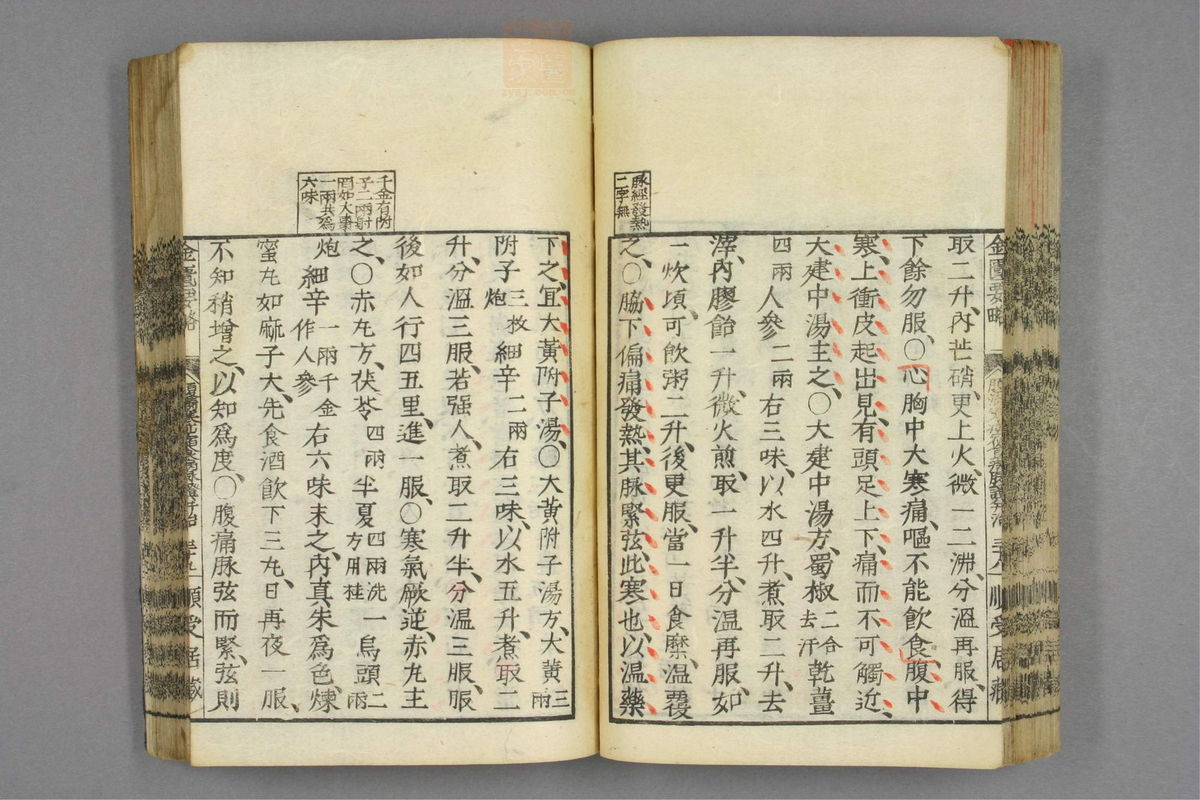 取二升、內芒硝、更上火、微一二沸、分溫再服、得
下餘勿服、○心胸中大寒痛、嘔不能飮食、腹中
寒、上衝皮起出見、有頭足上下、痛而不可觸近、
大建中湯主之、○大建中湯方、蜀椒二合去汗乾薑
四兩人參二兩右三味、以水四升、煮取二升、去
滓、內膠飴一升、微火煎、取一升半、分溫再服、如
一炊頃、可飮粥二升、後更服、當一日食糜、溫覆
之、○脇下偏痛發熱、其脉緊弦、此寒也、以溫藥
脉經發熱
二字無
下之、宜大黃附子湯、○大黃附子湯方、大黃三兩
附子三枚炮細辛二兩右三味、以水五升、煮取二
升、分溫三服、若强人、煮取二升半、分溫三服、服
後如人行四五里、進一服、○寒氣厥逆、赤丸主
之、○赤丸方、茯苓四兩半夏四兩洗一方用桂烏頭二兩
炮細辛一兩千金作人參右六味末之、內真朱爲色、煉
蜜丸如麻子大、先食酒飮下三丸、日再夜一服、
不知稍增之、以知爲度、○腹痛脉弦而緊、弦則
千金有附
子二兩射
罔如大棗
一兩共爲
六味
金匱要略
順受居藏
zysj.com.cn